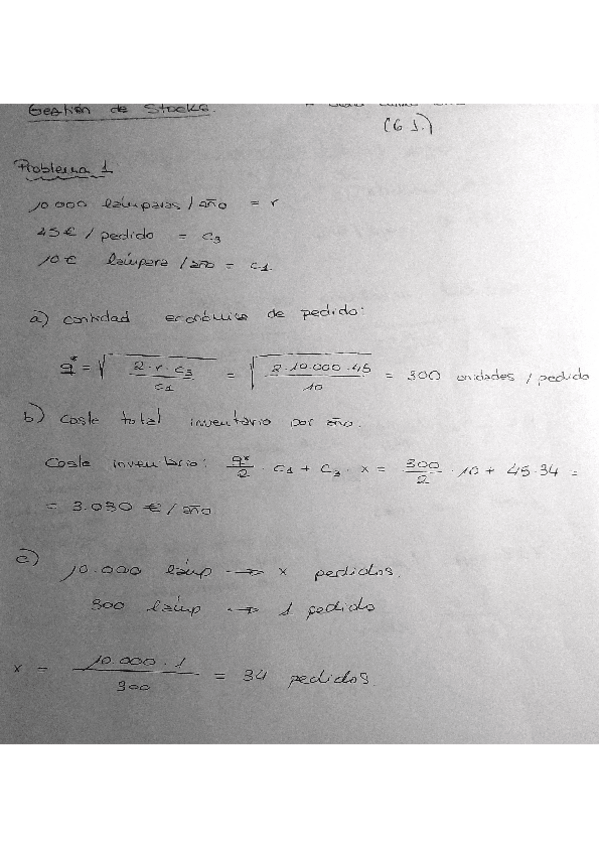 Gestión de Stocks.
(G J.)
Problema 1
10.000 lámparas / año = r
45€ / pedido = c3
10€ lámpara / año = c1.
a) cantidad económica de pedido:
q* = √(2·r·c3 / c1) = √(2·10.000·45 / 10) = 300 unidades / pedido
b) coste total inventario por año.
Coste inventario: q*/2 · c1 + c3 · x = 300/2 · 10 + 45·34 =
= 3.030 €/año
c) 10.000 lámp → x pedidos.
300 lámp → 1 pedido
x = 10.000 · 1 / 300 = 34 pedidos.